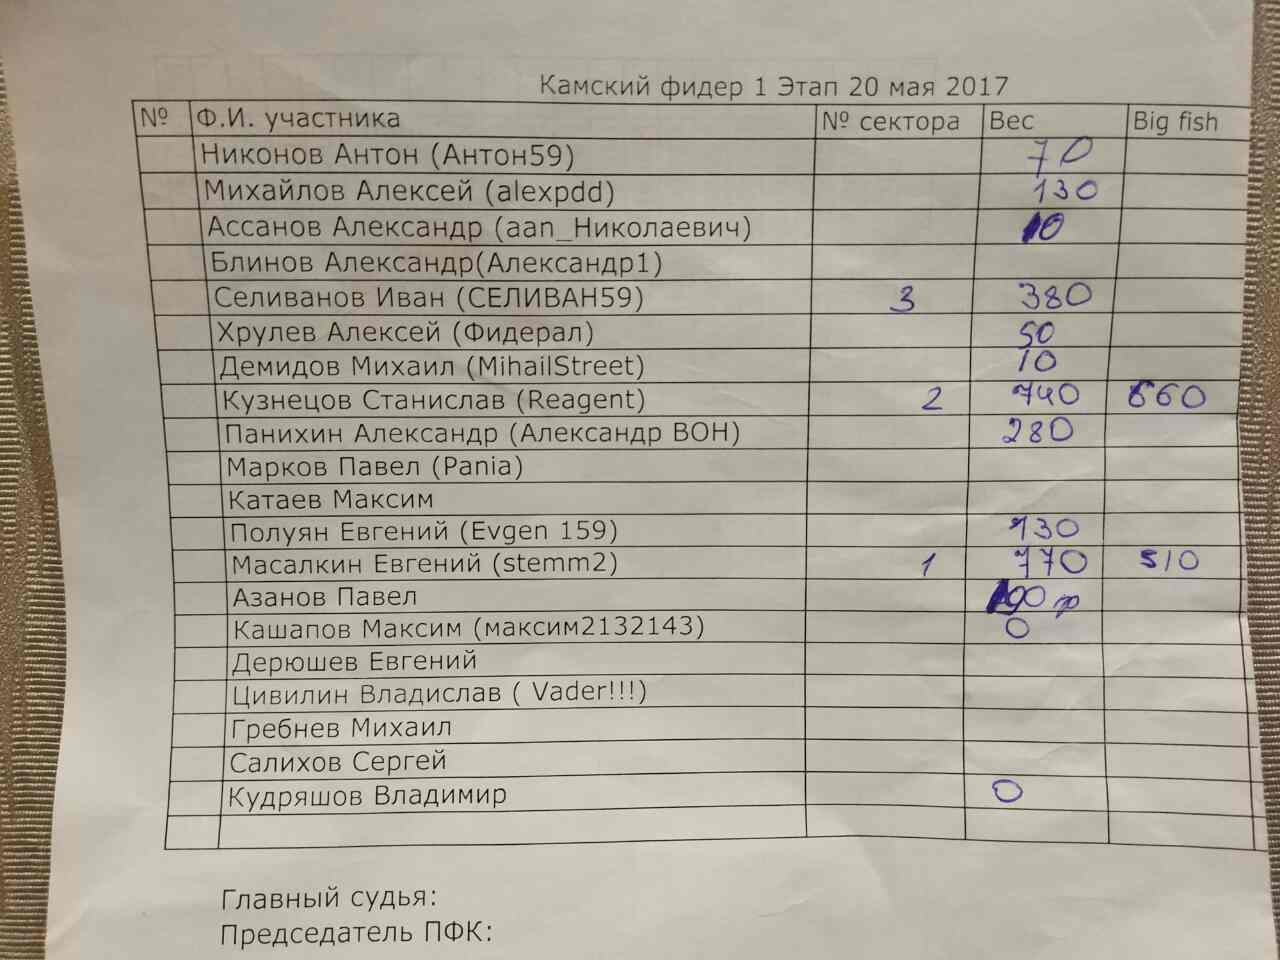 Камский фидер 1 Этап 20 мая 2017
№ Ф.И. участника № сектора Вес Big fish
Никонов Антон (Антон59) 70
Михайлов Алексей (alexpdd) 130
Ассанов Александр (aan_Николаевич) 10
Блинов Александр(Александр1)
Селиванов Иван (СЕЛИВАН59) 3 380
Хрулев Алексей (Фидерал) 50
Демидов Михаил (MihailStreet) 10
Кузнецов Станислав (Reagent) 2 740 660
Панихин Александр (Александр ВОН) 280
Марков Павел (Pania)
Катаев Максим
Полуян Евгений (Evgen 159) 130
Масалкин Евгений (stemm2) 1 770 510
Азанов Павел
Кашапов Максим (максим2132143) 0
Дерюшев Евгений
Цивилин Владислав ( Vader!!!)
Гребнев Михаил
Салихов Сергей
Кудряшов Владимир 0
Главный судья:
Председатель ПФК: